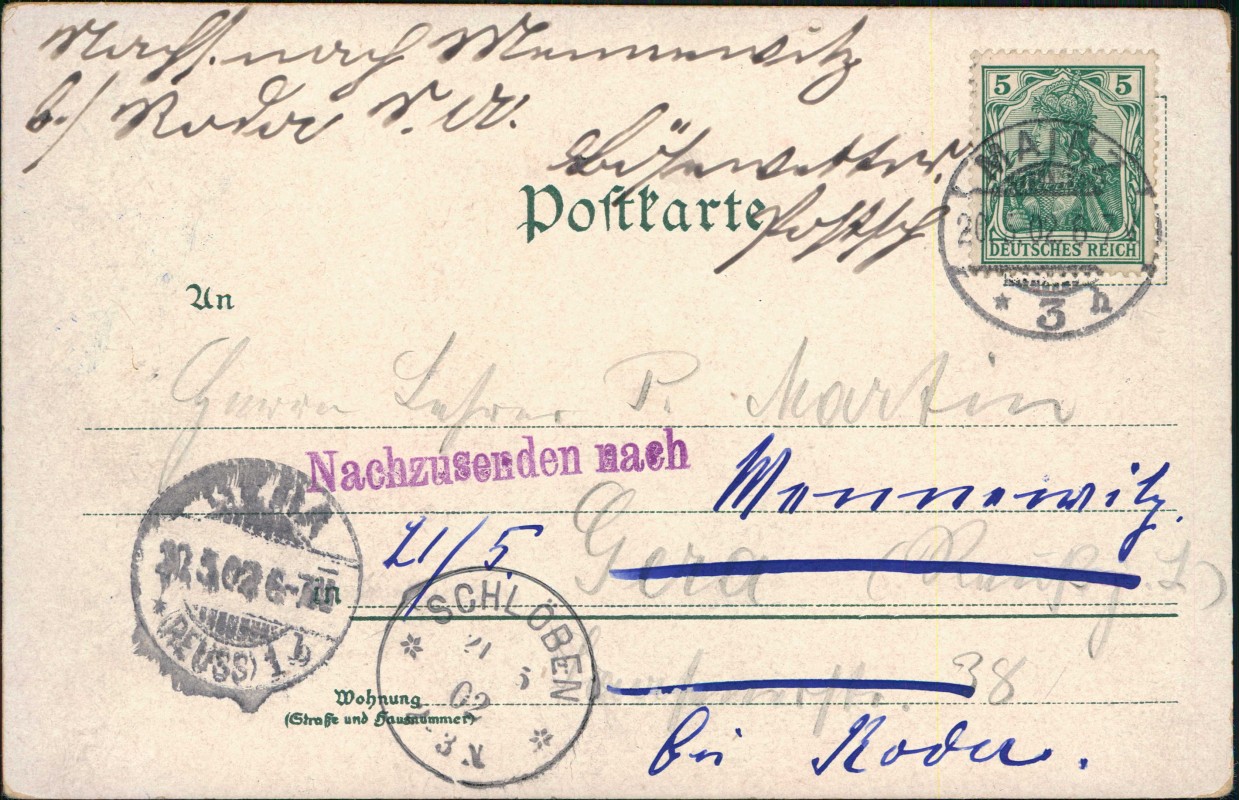 Nachs. nach Mennewitz
b./ Roda S. A.
Postsch
Postkarte
5 5
DEUTSCHES REICH
MAINZ
20.5.02 6-7
* 3 h
An
Herrn Lehrer P. Martin
Nachzusenden nach
Mennewitz.
21/5.
Gera (Reuß j. L)
GERA
20.5.02 6-7N
(REUSS) 1 b
in
SCHLÖBEN
21 5
02
38
Wohnung
(Straße und Hausnummer)
bei Roda.